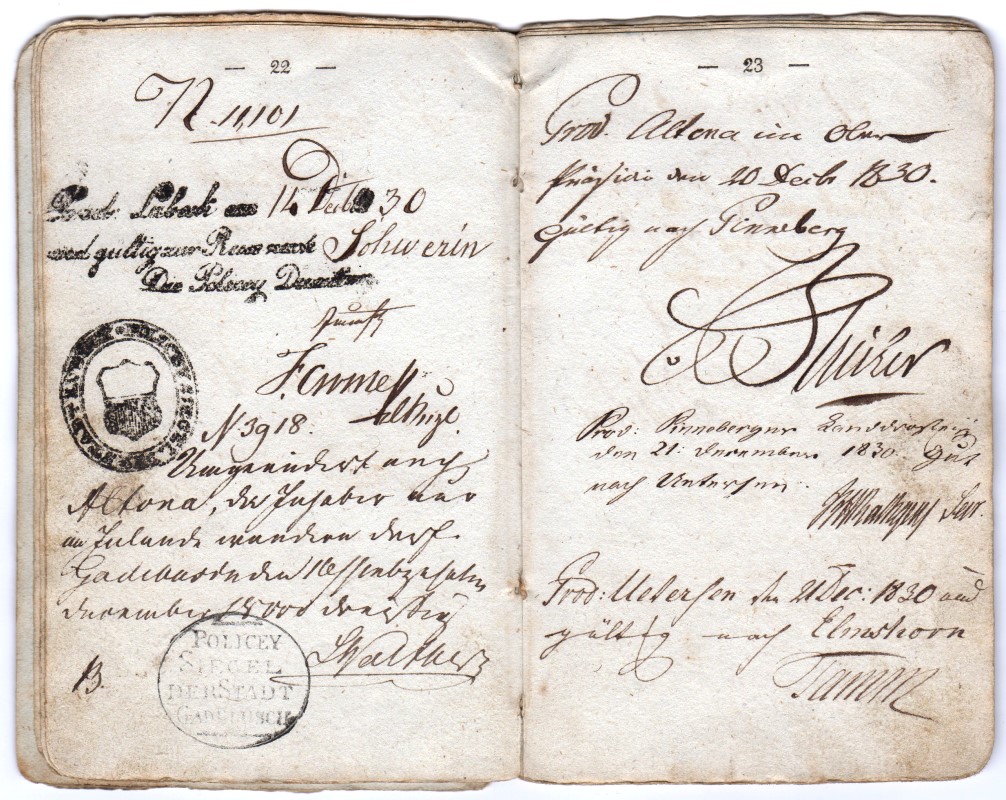 — 22 —
N 11,101
Prod. Lübeck am 14 Decb 30
und gültig zur Reise nach Schwerin
Die Policey
N. 3918.
Umgeändert nach
Altona, da Inhaber nur
im Inlande wandern darf.
Gadebusch den
December dreißig
Walther
B.
POLICEY
SIEGEL
DER STADT
GADEBUSCH
— 23 —
Prod. Altona im Ober
Präsidio den 20 Decb 1830.
gültig nach Pinneberg
Prod: Pinneberger Landdrostei
den 21: December 1830. Gut
nach Uetersen.
Prod: Uetersen den 21 Dec: 1830 und
gültig nach Elmshorn
Tamm